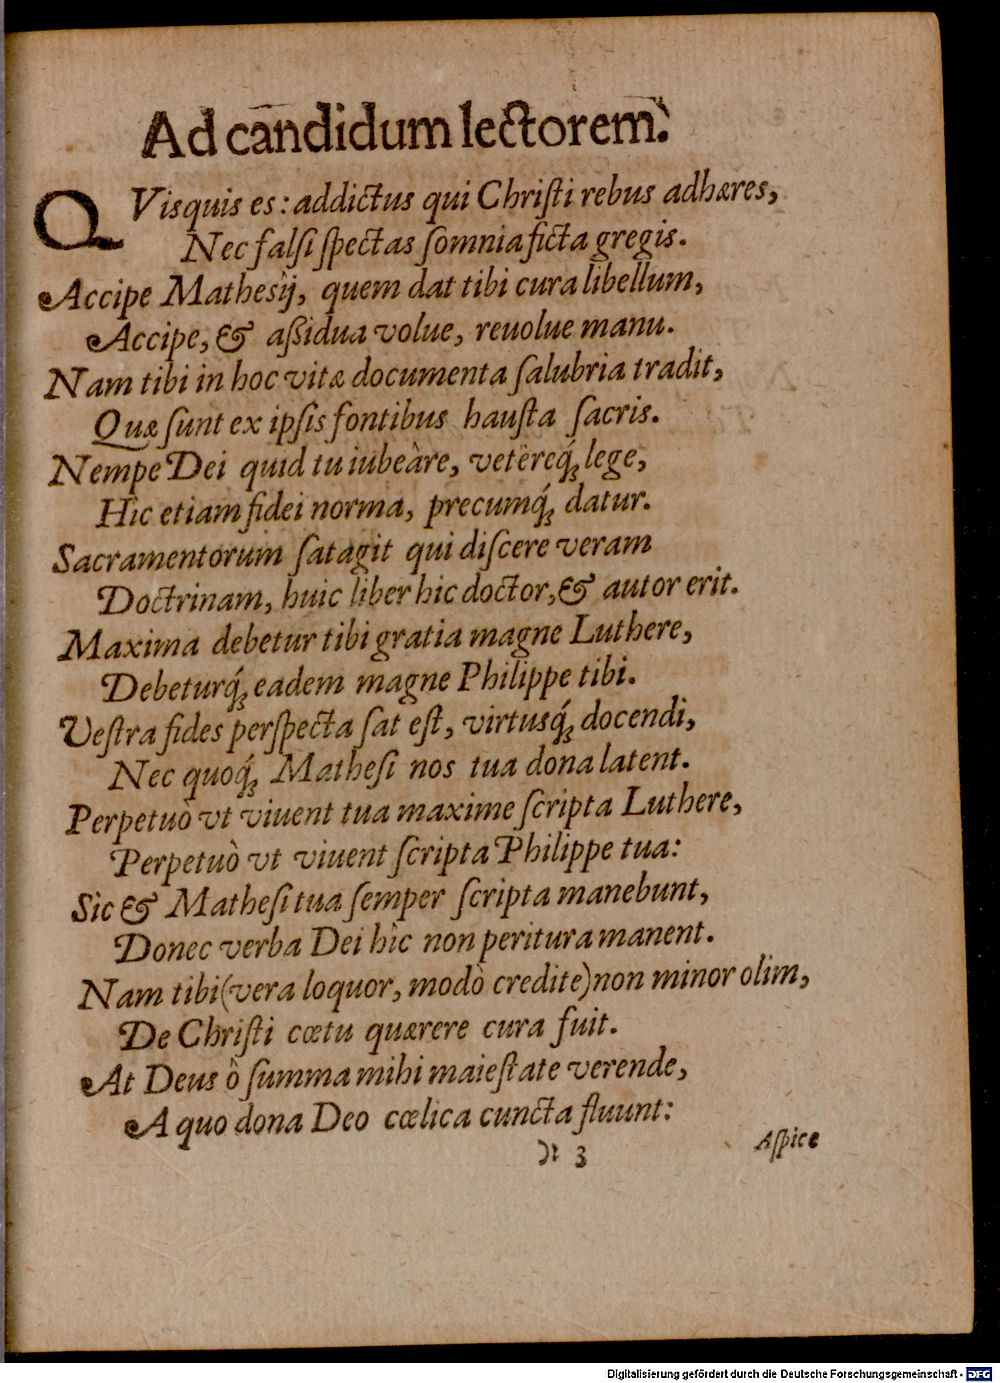 Ad candidum lectorem.
QVisquis es: addictus qui Chriſti rebus adhæres,
Nec falſi ſpectas ſomnia ficta gregis.
Accipe Mathesij, quem dat tibi cura libellum,
Accipe, & aßidua volue, reuolue manu.
Nam tibi in hoc vitæ documenta ſalubria tradit,
Quæ ſunt ex ipſis fontibus hauſta ſacris.
Nempe Dei quid tu iubeàre, vetèreq́ꝫ lege,
Hìc etiam fidei norma, precumq́ꝫ datur.
Sacramentorum ſatagit qui diſcere veram
Doctrinam, huic liber hic doctor, & autor erit.
Maxima debetur tibi gratia magne Luthere,
Debeturq́ꝫ eadem magne Philippe tibi.
Veſtra fides perſpecta ſat eſt, virtusq́ꝫ docendi,
Nec quoq́ꝫ Matheſi nos tua dona latent.
Perpetuò vt viuent tua maxime ſcripta Luthere,
Perpetuò vt viuent ſcripta Philippe tua:
Sic & Matheſi tua ſemper ſcripta manebunt,
Donec verba Dei hìc non peritura manent.
Nam tibi (vera loquor, modò credite) non minor olim,
De Chriſti cœtu quærere cura fuit.
At Deus ô ſumma mihi maieſtate verende,
A quo dona Deo cœlica cuncta fluunt:
)( 3 Aſpice
Digitalisierung gefördert durch die Deutsche Forschungsgemeinschaft - DFG